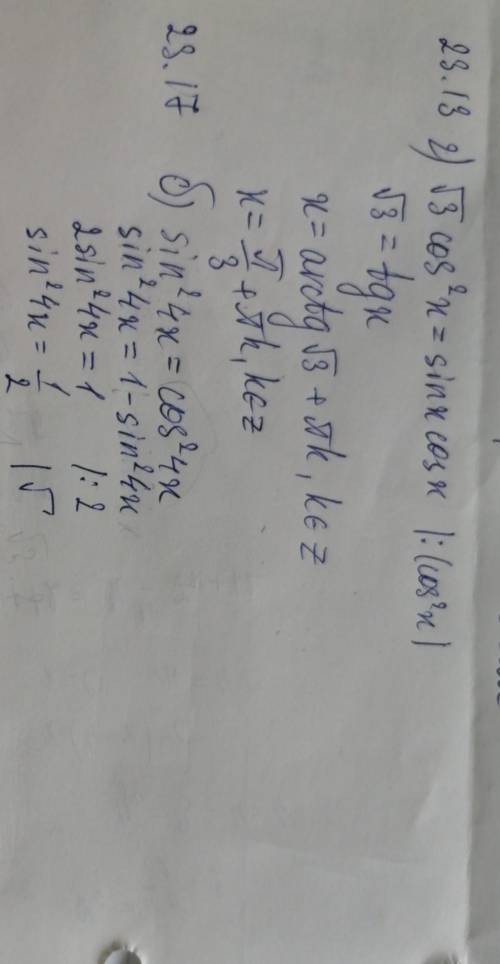 23.13 г) √3 cos²x = sinx cosx |:(cos²x)
√3 = tgx
x = arctg √3 + πk, k∈z
x = π/3 + πk, k∈z
23.17 б) sin²4x = cos²4x
sin²4x = 1 - sin²4x
2sin²4x = 1 |:2
sin²4x = 1/2 |√